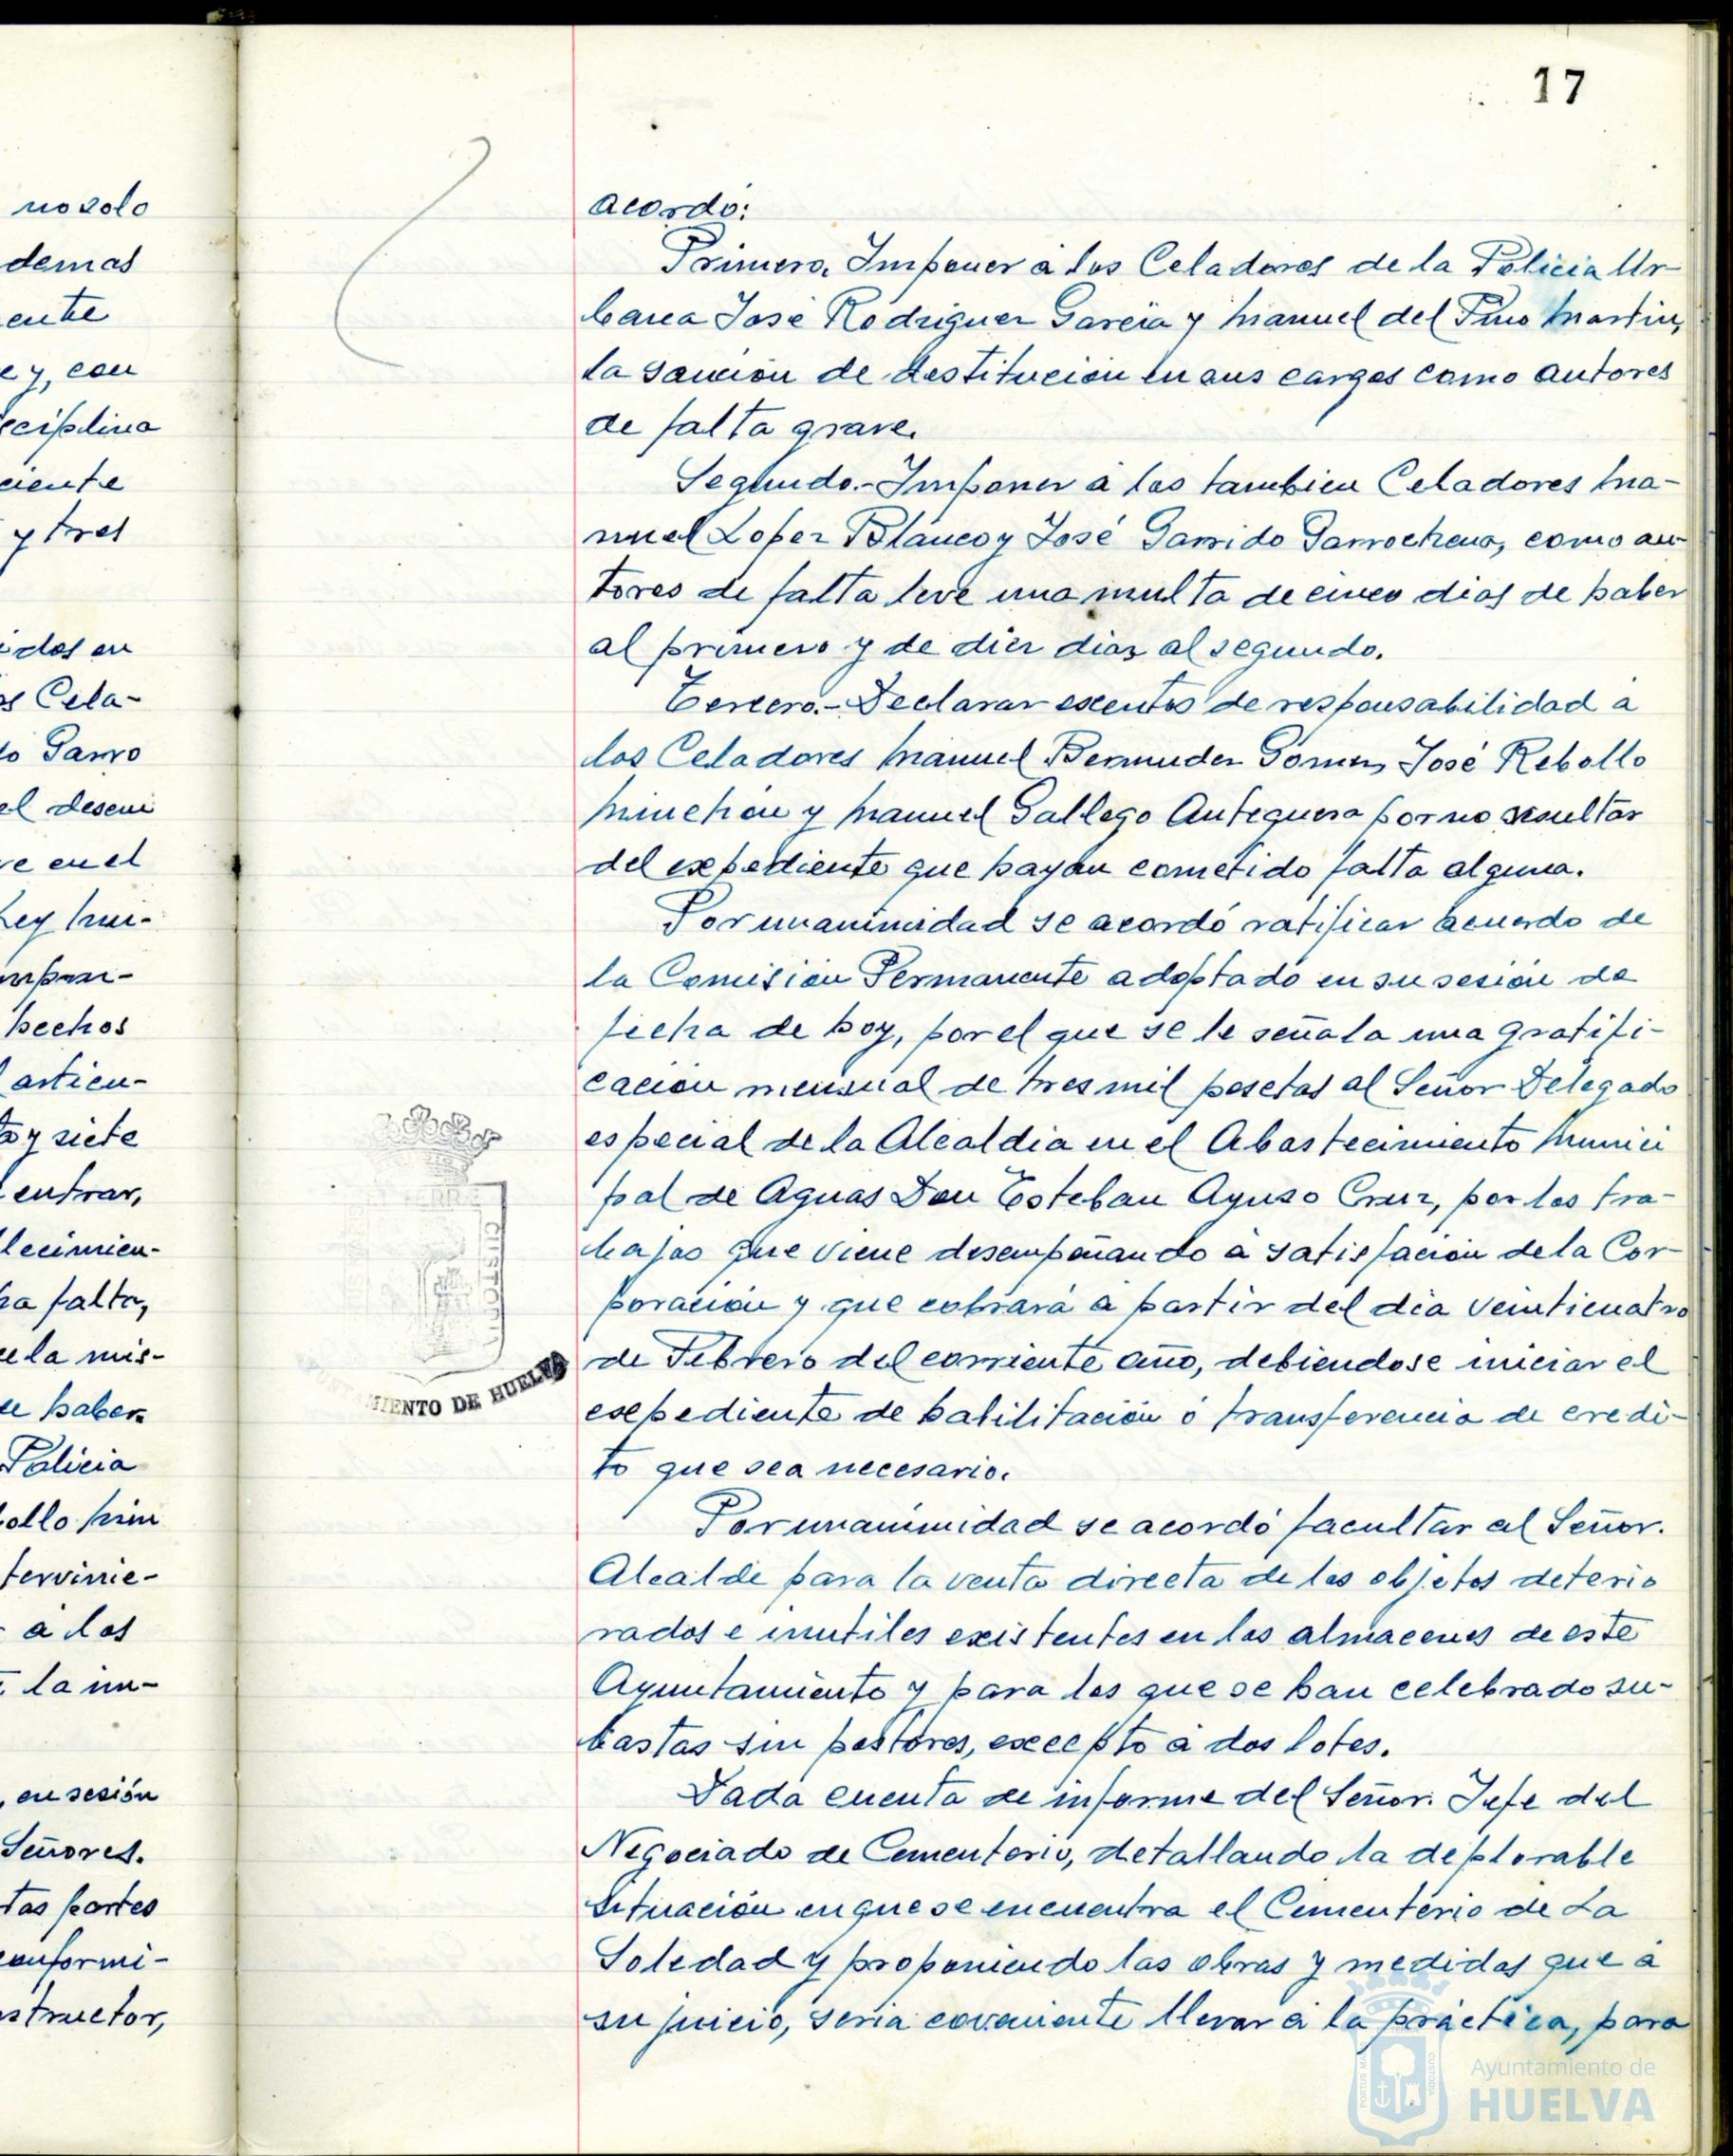 17
no solo
demas
ente
e y, con
sciplina
ciente
y tres
idos en
os Cela-
do Garro
el desem
ve en el
Ley Mu-
impon-
hechos
articu-
ta y siete
entrar,
lecimien-
ha falta,
de la mis-
de haber
Policia
bollo Min
tervinie-
a los
la im-
, en sesión
Señores.
tas partes
conformi-
structor,
acordó:
Primero. Imponer á los Celadores de la Policia Ur-
bana José Rodriguez Garcia y Manuel del Pino Martin,
la sanción de destitución en sus cargos como autores
de falta grave.
Segundo.- Imponer á los tambien Celadores Ma-
nuel Lopez Blanco y José Garrido Garrochena, como au-
tores de falta leve una multa de cinco dias de haber
al primero y de diez dias al segundo.
Tercero.- Declarar exentos de responsabilidad a
los Celadores Manuel Bermudez Gomez, José Rebollo
Minchón y Manuel Gallego Antequera por no resultar
del expediente que hayan cometido falta alguna.
Por unanimidad se acordó ratificar acuerdo de
la Comisión Permanente adoptado en su sesión de
fecha de hoy, por el que se le señala una gratifi-
cación mensual de tres mil pesetas al Señor Delegado
especial de la Alcaldia en el Abastecimiento Munici
pal de Aguas Don Esteban Ayuso Cruz, por los tra-
bajos que viene desempeñando á satisfación de la Cor-
poración y que cobrará á partir del dia veinticuatro
de Febrero del corriente año, debiendose iniciar el
expediente de habilitación ó transferencia de credi-
to que sea necesario.
Por unanimidad se acordó facultar al Señor.
Alcalde para la venta directa de los objetos deterio
rados e inutiles existentes en los almacenes de este
Ayuntamiento y para los que se han celebrado su-
bastas sin postores, excepto á dos lotes.
Dada cuenta de informe del Señor. Jefe del
Negociado de Cementerio, detallando la deplorable
situación en que se encuentra el Cementerio de La
Soledad y proponiendo las obras y medidas que á
su juicio, seria covenient llevar á la práctica, para
MIENTO DE HUELVA
PORTUS MA
CUSTODIA
Ayuntamiento de
HUELVA